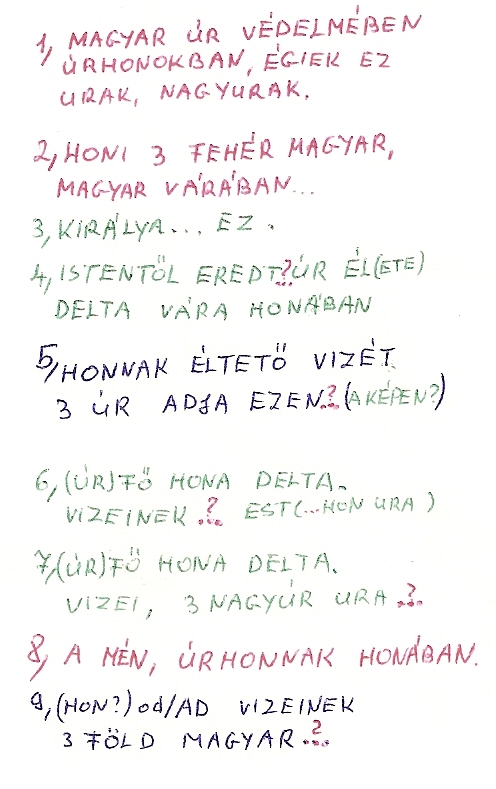 1, MAGYAR ÚR VÉDELMÉBEN
ÚRHONOKBAN, ÉGIEK EZ
URAK, NAGYURAK.
2, HONI 3 FEHÉR MAGYAR,
MAGYAR VÁRÁBAN...
3, KIRÁLYA... EZ.
4, ISTENTŐL EREDT?ÚR ÉL(ETE)
DELTA VÁRA HONÁBAN
5, HONNAK ÉLTETŐ VIZÉT
3 ÚR ADJA EZEN...?(A KÉPEN?)
6, (ÚR)FŐ HONA DELTA.
VIZEINEK ...? EST(...HON URA)
7, (ÚR)FŐ HONA DELTA.
VIZEI, 3 NAGYÚR URA ...?
8, A MÉN, ÚRHONNAK HONÁBAN.
9, (HON?) Od/AD VIZEINEK
3 FÖLD MAGYAR ...?